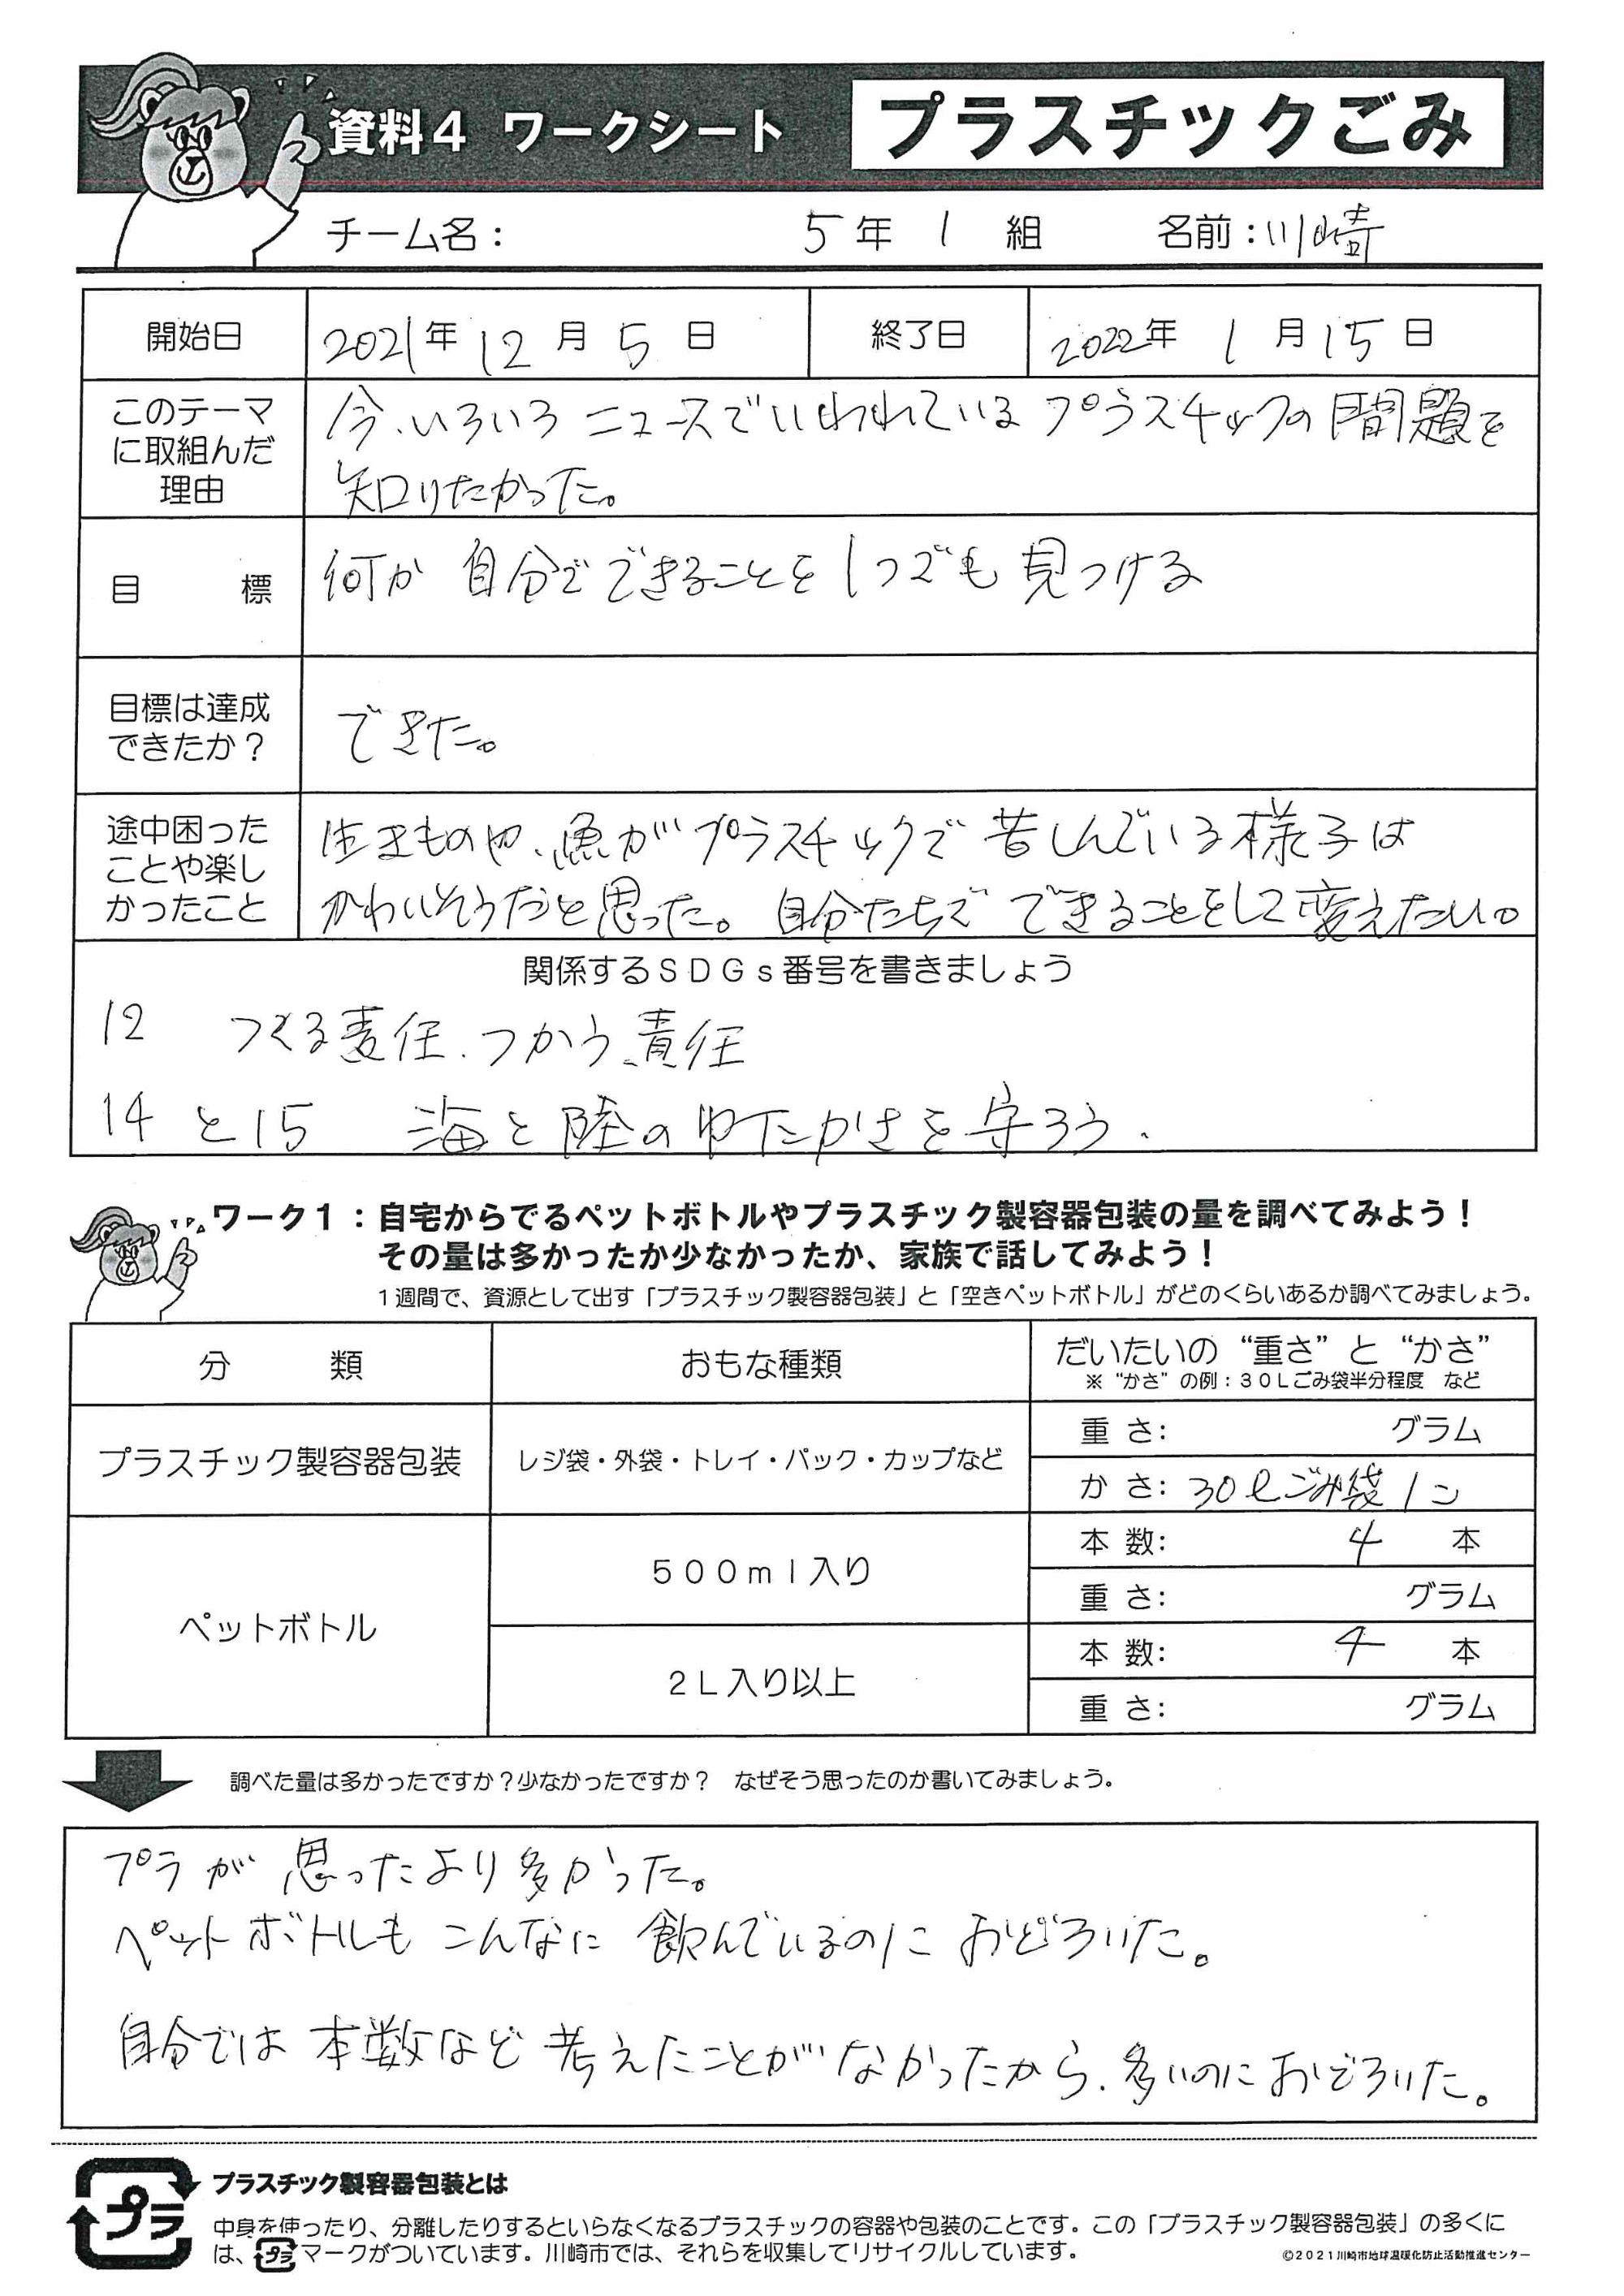 資料4 ワークシート プラスチックごみ
チーム名： 5年 1 組 名前：川崎
開始日 2021年 12月 5日 終了日 2022年 1月15日
このテーマ
に取組んだ
理由
今、いろいろニュースでいわれているプラスチックの問題を
知りたかった。
目 標
何か 自分でできることを1つでも見つける
目標は達成
できたか？
できた。
途中困った
ことや楽し
かったこと
生きものや、魚がプラスチックで苦しんでいる様子は
かわいそうだと思った。自分たちで できることをして変えたい。
関係するSDGs番号を書きましょう
12 つくる責任、つかう責任
14と15 海と陸のゆたかさを守ろう.
ワーク1：自宅からでるペットボトルやプラスチック製容器包装の量を調べてみよう！
その量は多かったか少なかったか、家族で話してみよう！
1週間で、資源として出す「プラスチック製容器包装」と「空きペットボトル」がどのくらいあるか調べてみましょう。
分 類 おもな種類 だいたいの“重さ”と“かさ”
※“かさ”の例：30Lごみ袋半分程度 など
プラスチック製容器包装 レジ袋・外袋・トレイ・パック・カップなど
重 さ: グラム
か さ: 30ℓごみ袋1コ
ペットボトル
500ml入り
本 数: 4 本
重 さ: グラム
2L入り以上
本 数: 4 本
重 さ: グラム
調べた量は多かったですか？少なかったですか？ なぜそう思ったのか書いてみましょう。
プラが 思ったより多かった。
ペットボトルも こんなに 飲んでいるのに おどろいた。
自分では 本数など 考えたことがなかったから、多いのにおどろいた。
プラ
プラスチック製容器包装とは
中身を使ったり、分離したりするといらなくなるプラスチックの容器や包装のことです。この「プラスチック製容器包装」の多くに
は、プラマークがついています。川崎市では、それらを収集してリサイクルしています。
©2021川崎市地球温暖化防止活動推進センター